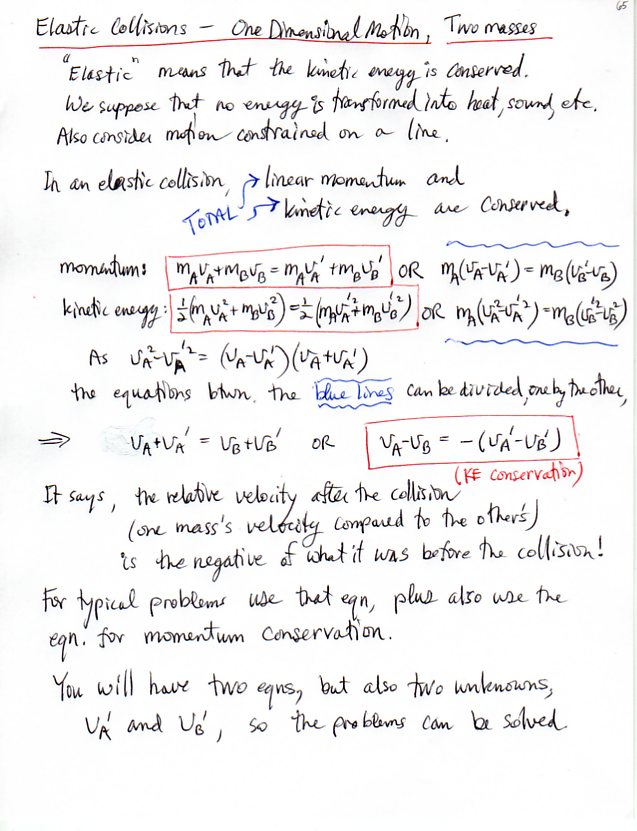 65
Elastic Collisions – One Dimensional Motion, Two masses
"Elastic" means that the kinetic energy is conserved.
We suppose that no energy is transformed into heat, sound, etc.
Also consider motion constrained on a line.
In an elastic collision, → linear momentum and
TOTAL → kinetic energy are conserved.
momentum: m_A v_A + m_B v_B = m_A v_A' + m_B v_B' OR m_A(v_A - v_A') = m_B(v_B' - v_B)
kinetic energy: ½(m_A v_A² + m_B v_B²) = ½(m_A v_A'² + m_B v_B'²) OR m_A(v_A² - v_A'²) = m_B(v_B'² - v_B²)
As v_A² - v_A'² = (v_A - v_A')(v_A + v_A')
the equations btwn. the blue lines can be divided, one by the other,
⇒ v_A + v_A' = v_B + v_B' OR v_A - v_B = -(v_A' - v_B')
(KE conservation)
It says, the relative velocity after the collision
(one mass's velocity compared to the other's)
is the negative of what it was before the collision!
For typical problems use that eqn, plus also use the
eqn. for momentum conservation.
You will have two eqns, but also two unknowns,
v_A' and v_B', so the problems can be solved